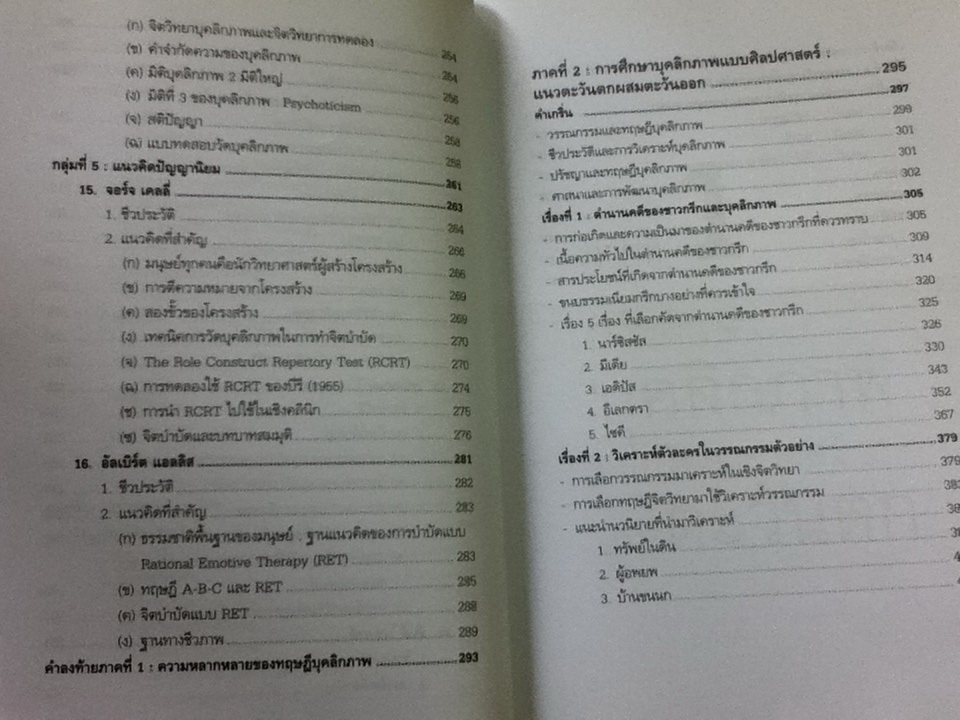 (ก) จิตวิทยาบุคลิกภาพและจิตวิทยาการทดลอง 254
(ข) คำจำกัดความของบุคลิกภาพ 254
(ค) มิติบุคลิกภาพ 2 มิติใหญ่ 256
(ง) มิติที่ 3 ของบุคลิกภาพ : Psychoticism 256
(จ) สติปัญญา 258
(ฉ) แบบทดสอบวัดบุคลิกภาพ 258
กลุ่มที่ 5 : แนวคิดปัญญานิยม 261
15. จอร์จ เคลลี่ 263
1. ชีวประวัติ 264
2. แนวคิดที่สำคัญ 266
(ก) มนุษย์ทุกคนคือนักวิทยาศาสตร์ผู้สร้างโครงสร้าง 266
(ข) การตีความหมายจากโครงสร้าง 269
(ค) สองขั้วของโครงสร้าง 269
(ง) เทคนิคการวัดบุคลิกภาพในการทำจิตบำบัด 270
(จ) The Role Construct Repertory Test (RCRT) 270
(ฉ) การทดลองใช้ RCRT ของบีรี (1955) 274
(ช) การนำ RCRT ไปใช้ในเชิงคลินิก 275
(ซ) จิตบำบัดและบทบาทสมมุติ 276
16. อัลเบิร์ต แอลลิส 281
1. ชีวประวัติ 282
2. แนวคิดที่สำคัญ 283
(ก) ธรรมชาติพื้นฐานของมนุษย์ : ฐานแนวคิดของการบำบัดแบบ
Rational Emotive Therapy (RET) 283
(ข) ทฤษฎี A-B-C และ RET 285
(ค) จิตบำบัดแบบ RET 288
(ง) ฐานทางชีวภาพ 289
คำลงท้ายภาคที่ 1 : ความหลากหลายของทฤษฎีบุคลิกภาพ 293
ภาคที่ 2 : การศึกษาบุคลิกภาพแบบศิลปศาสตร์ :
แนวตะวันตกผสมตะวันออก 295
คำเกริ่น 297
- วรรณกรรมและทฤษฎีบุคลิกภาพ 299
- ชีวประวัติและการวิเคราะห์บุคลิกภาพ 301
- ปรัชญาและทฤษฎีบุคลิกภาพ 301
- ศาสนาและการพัฒนาบุคลิกภาพ 302
เรื่องที่ 1 : ตำนานคดีของชาวกรีกและบุคลิกภาพ 305
- การก่อเกิดและความเป็นมาของตำนานคดีของชาวกรีกที่ควรทราบ 305
- เนื้อความทั่วไปในตำนานคดีของชาวกรีก 309
- สารประโยชน์ที่เกิดจากตำนานคดีของชาวกรีก 314
- ขนบธรรมเนียมกรีกบางอย่างที่ควรเข้าใจ 320
- เรื่อง 5 เรื่อง ที่เลือกคัดจากตำนานคดีของชาวกรีก 325
1. นาร์ซิสซัส 326
2. มีเดีย 330
3. เอดิปัส 343
4. อีเลกตรา 352
5. ไซคี 367
เรื่องที่ 2 : วิเคราะห์ตัวละครในวรรณกรรมตัวอย่าง 379
- การเลือกวรรณกรรมมาเคราะห์ในเชิงจิตวิทยา 379
- การเลือกทฤษฎีจิตวิทยามาใช้วิเคราะห์วรรณกรรม
- แนะนำนวนิยายที่นำมาวิเคราะห์
1. ทรัพย์ในดิน
2. ผู้อพยพ
3. บ้านขนนก